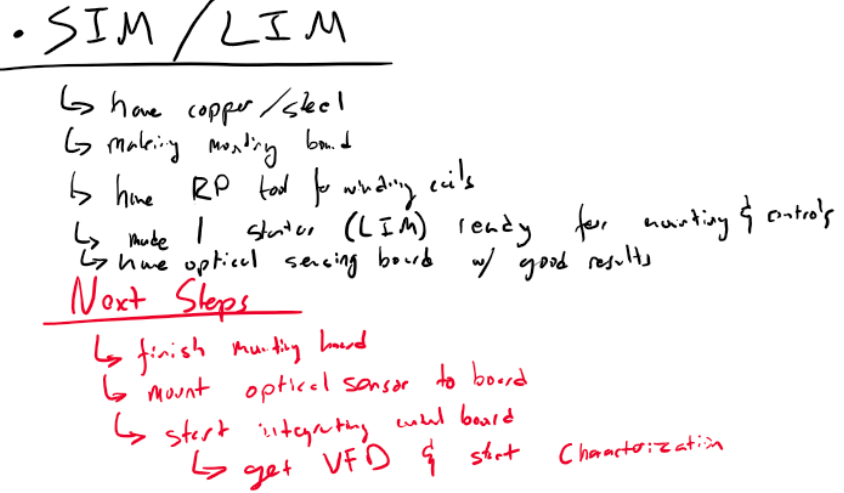 • SIM / LIM
↳ have copper/steel
↳ making mounting board
↳ have RP tool for winding coils
↳ made 1 stator (LIM) ready for mounting & controls
↳ have optical sensing board w/ good results
Next Steps
↳ finish mounting board
↳ mount optical sensor to board
↳ start integrating control board
↳ get VFD & start Characterization